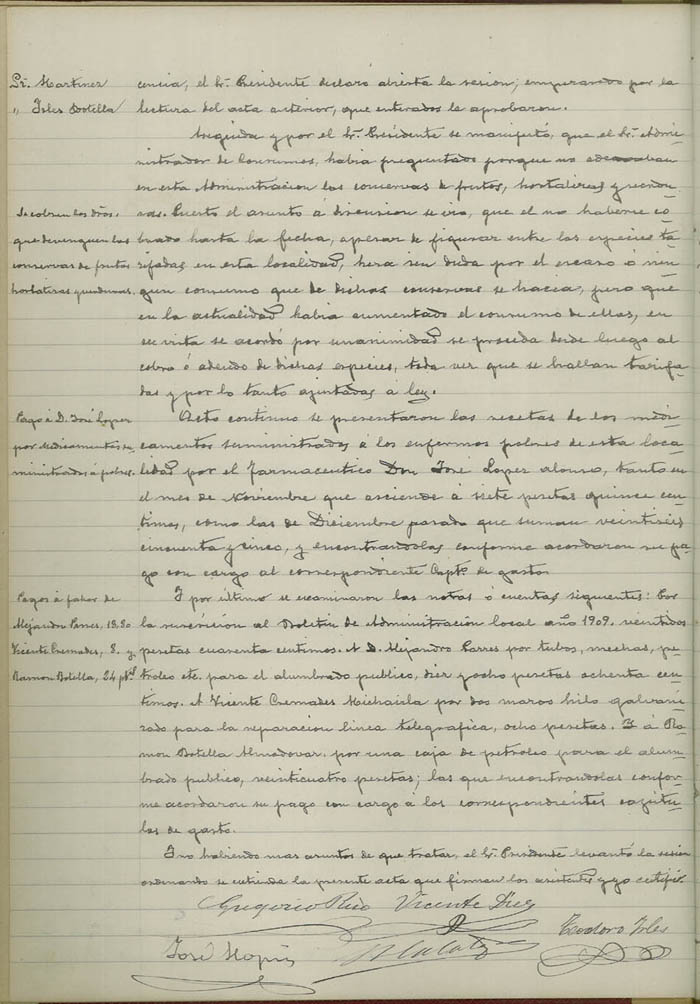 Sr. Martinez
" Isles Botella
Se cobren los dros.
que devenguen las
conservas de frutas
hortalizas y verduras.
Pago á D. José Lopez
por medicamentos su
ministrados á pobres.
Pagos á fabor de
Alejandro Parres, 18,80
Vicente Cremades, 8. y
Ramon Botella, 24 ptas
cencia, el Sr. Presidente declaró abierta la sesion; empezando por la
lectura del acta anterior, que enterados la aprobaron.
Seguida y por el Sr. Presidente se manifestó, que el Sr. Admi-
nistrador de Consumos, habia preguntado porque no adeudaban
en esta Administracion las conservas de frutas, hortalizas y verdu-
ras. Puesto el asunto á discusion se vio, que el no haberse co-
brado hasta la fecha, apesar de figurar entre las especies ta-
rifadas en esta localidad, hera sin duda por el escaso ó nin-
gun consumo que de dichas conservas se hacia, pero que
en la actualidad habia aumentado el consumo de ellas, en
su vista se acordó por unanimidad se proceda desde luego al
cobro ó adeudo de dichas especies, toda vez que se hallan tarifa-
das y por lo tanto ajustadas á ley.
Acto continuo se presentaron las recetas de los medi-
camentos suministrados á los enfermos pobres de esta loca-
lidad por el farmaceutico Don José Lopez Alonso, tanto en
el mes de Noviembre que asciende á siete pesetas quince cen-
timos, como las de Diciembre pasado que suman veintiseis
cincuenta y cinco, y encontrandolas conforme acordaron su pa-
go con cargo al correspondiente Capto. de gastos
Y por ultimo se examinaron las notas ó cuentas siguientes: Por
la suscricion al Boletin de Administracion local año 1909. veintidos
pesetas cuarenta centimos. A D. Alejandro Parres por tubos, mechas, pe-
troleo etc. para el alumbrado publico, diez y ocho pesetas ochenta cen-
timos. A Vicente Cremades por dos mazos hilo galvani-
zado para la reparacion linea telegrafica, ocho pesetas. Y á Ra-
mon Botella Almodovar. por una caja de petroleo para el alum-
brado publico, veinticuatro pesetas; las que encontrandolas confor-
me acordaron su pago con cargo á los correspondientes capitu-
los de gasto.
Y no habiendo mas asuntos de que tratar, el Sr. Presidente levantó la sesion
ordenando se estienda la presente acta que firman los asistentes y yo certifico.
Gregorio Rico Vicente Diez
Teodoro Isles
José